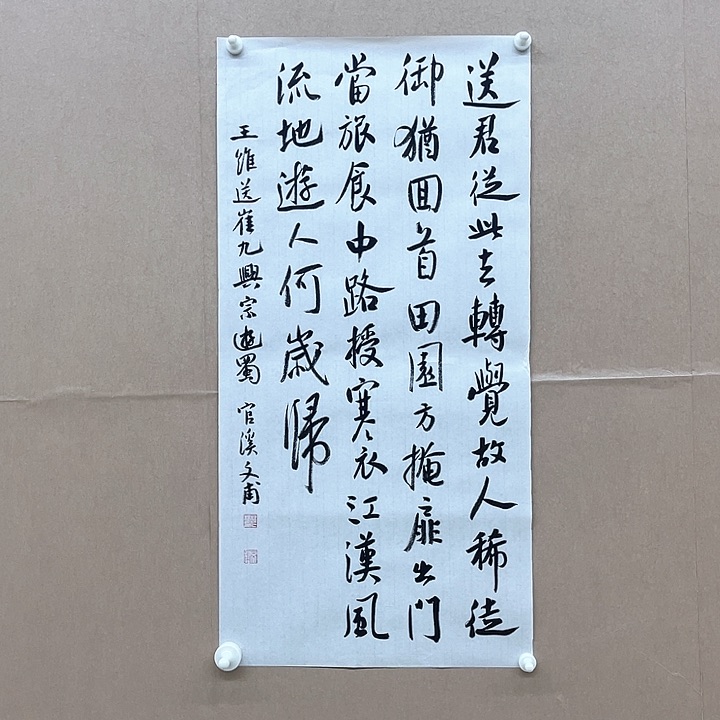 送君從此去轉覺故人稀徒
御猶回首田園方掩扉出門
當旅食中路授寒衣江漢風
流地遊人何歲歸
王維送崔九興宗遊蜀 官溪文甫